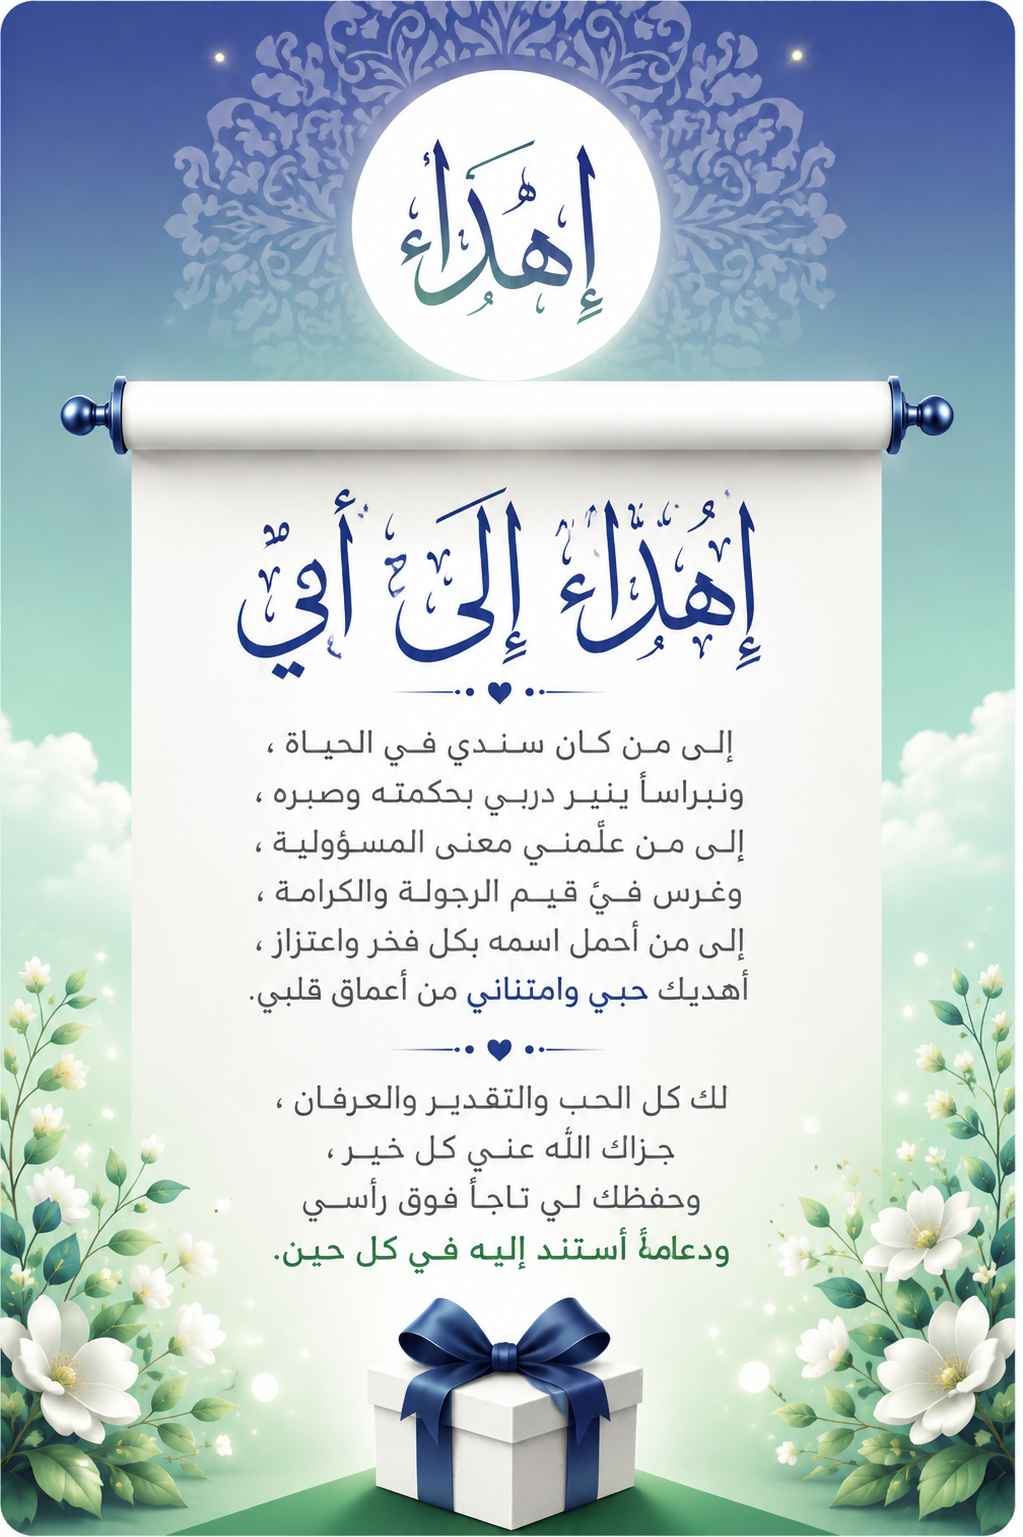 إهُدَاء
إِهُدَّاء إِلَىَ أَفيِّ
إلى من كان سندي في الحياة ،
ونبراسأ ينير دربي بحكمته وصبره ،
إلى من علَّمني معنى المسؤولية ،
وغرس فيَّ قيم الرجولة والكرامة ،
إلى من أحمل اسمه بكل فخر واعتزاز ،
أهديك حبي وامتناني من أعماق قلبي.
لك كل الحب والتقدير والعرفان ،
جزاك الله عني كل خير ،
وحفظك لي تاجأ فوق رأسي
ودعامةً أستند إليه في كل حين.